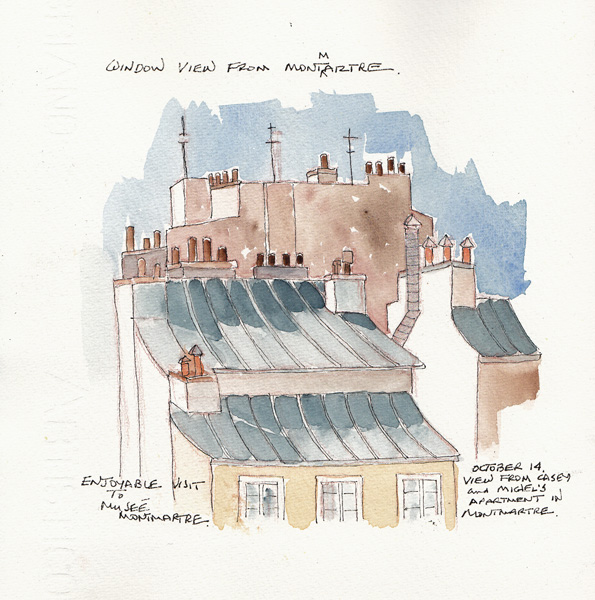 WINDOW VIEW FROM MONTMARTRE.
ENJOYABLE VISIT
TO
MUSÉE
MONTMARTRE.
OCTOBER 14.
VIEW FROM CASEY
and MICHEL'S
APARTMENT IN
MONTMARTRE.